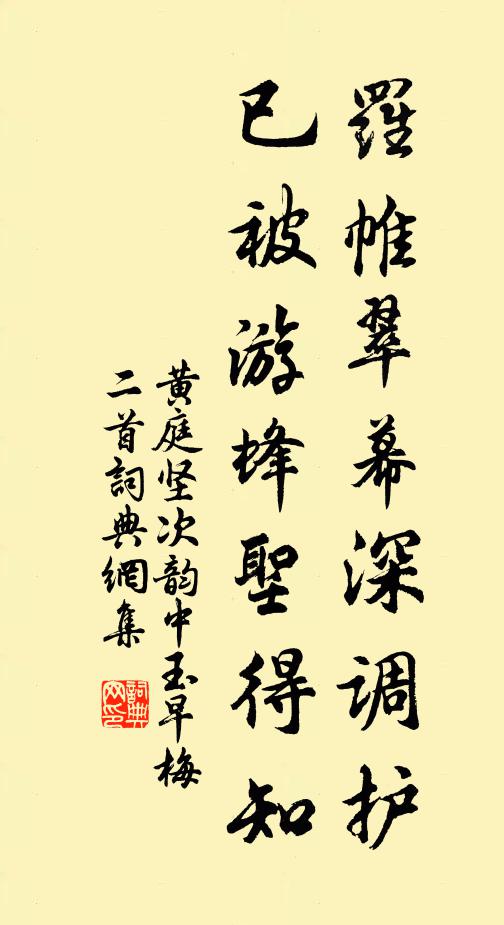 羅帷翠幕深调护
已被游蜂聖得知
黄庭坚次韵中玉早梅
二首詞典網集
詞典网印